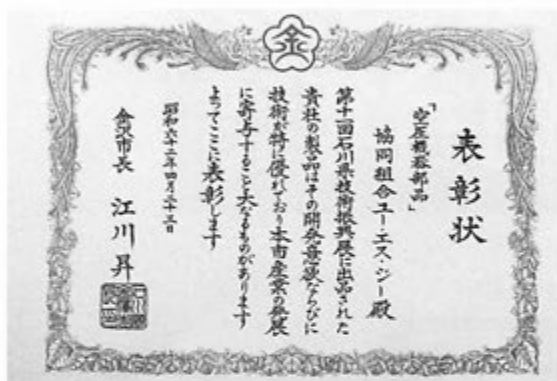 金
表彰状
「空圧機器部品」
協同組合ユー・エス・ジー殿
第十一回石川県技術振興展に出品された
貴社の製品はその開発意欲ならびに
技術が特に優れており本市産業の発展
に寄与すること大なるものがあります
よってここに表彰します
昭和六十二年四月二十三日
金沢市長 江川昇